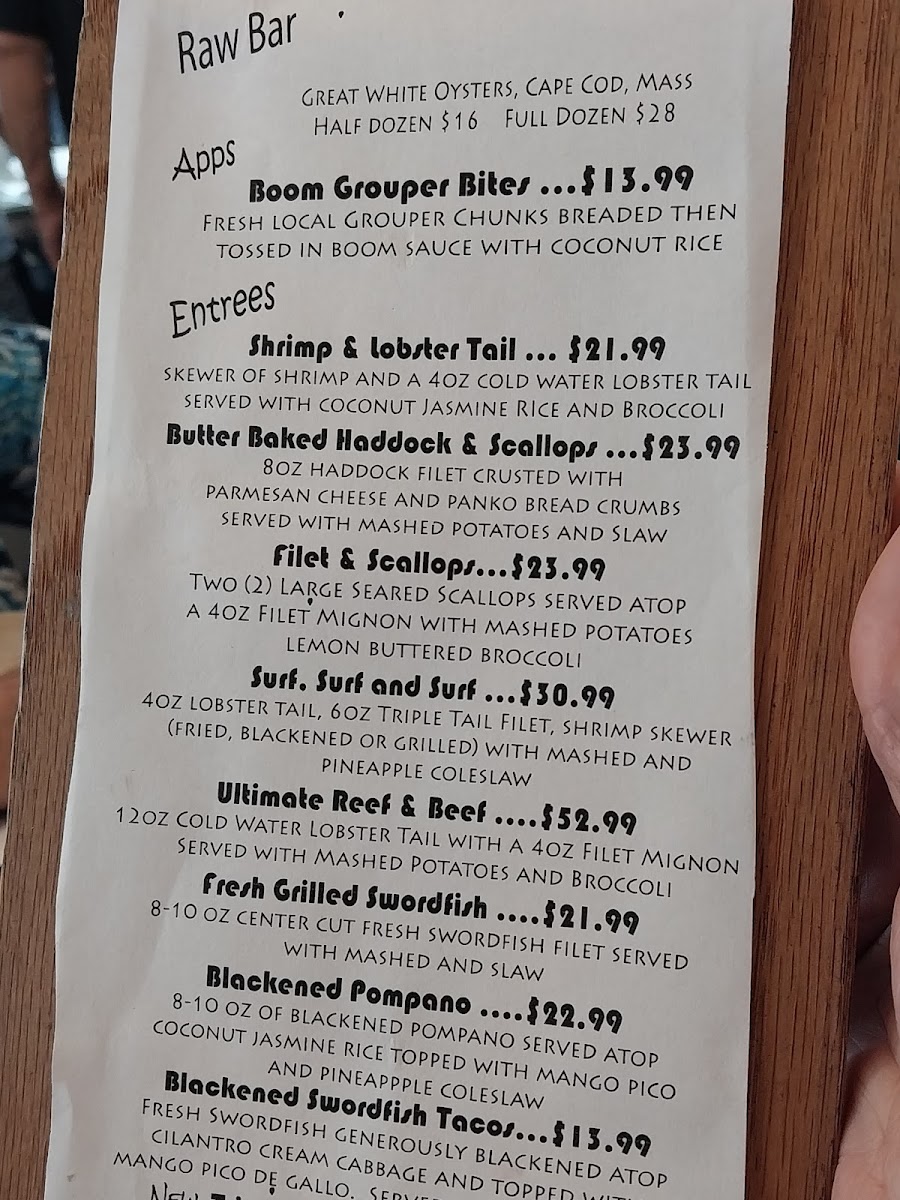 Raw Bar
Great White Oysters, Cape Cod, Mass
Half dozen $16 Full Dozen $28
Apps
Boom Grouper Bites ...$13.99
Fresh local Grouper Chunks breaded then
tossed in boom sauce with coconut rice
Entrees
Shrimp & Lobster Tail ... $21.99
skewer of shrimp and a 4oz cold water lobster tail
served with coconut Jasmine Rice and Broccoli
Butter Baked Haddock & Scallops ...$23.99
8oz haddock filet crusted with
parmesan cheese and panko bread crumbs
served with mashed potatoes and Slaw
Filet & Scallops...$23.99
Two (2) Large Seared Scallops served atop
a 4oz Filet Mignon with mashed potatoes
lemon buttered broccoli
Surf, Surf and Surf ...$30.99
4oz lobster tail, 6oz Triple Tail Filet, shrimp skewer
(fried, blackened or grilled) with mashed and
pineapple coleslaw
Ultimate Reef & Beef ....$52.99
12oz Cold Water Lobster Tail with a 4oz Filet Mignon
Served with Mashed Potatoes and Broccoli
Fresh Grilled Swordfish ....$21.99
8-10 oz center cut fresh swordfish filet served
with mashed and slaw
Blackened Pompano ....$22.99
8-10 oz of blackened pompano served atop
coconut jasmine rice topped with mango pico
and pineappple coleslaw
Blackened Swordfish Tacos...$13.99
Fresh Swordfish generously blackened atop
cilantro cream cabbage and topped with
mango pico de gallo.
New